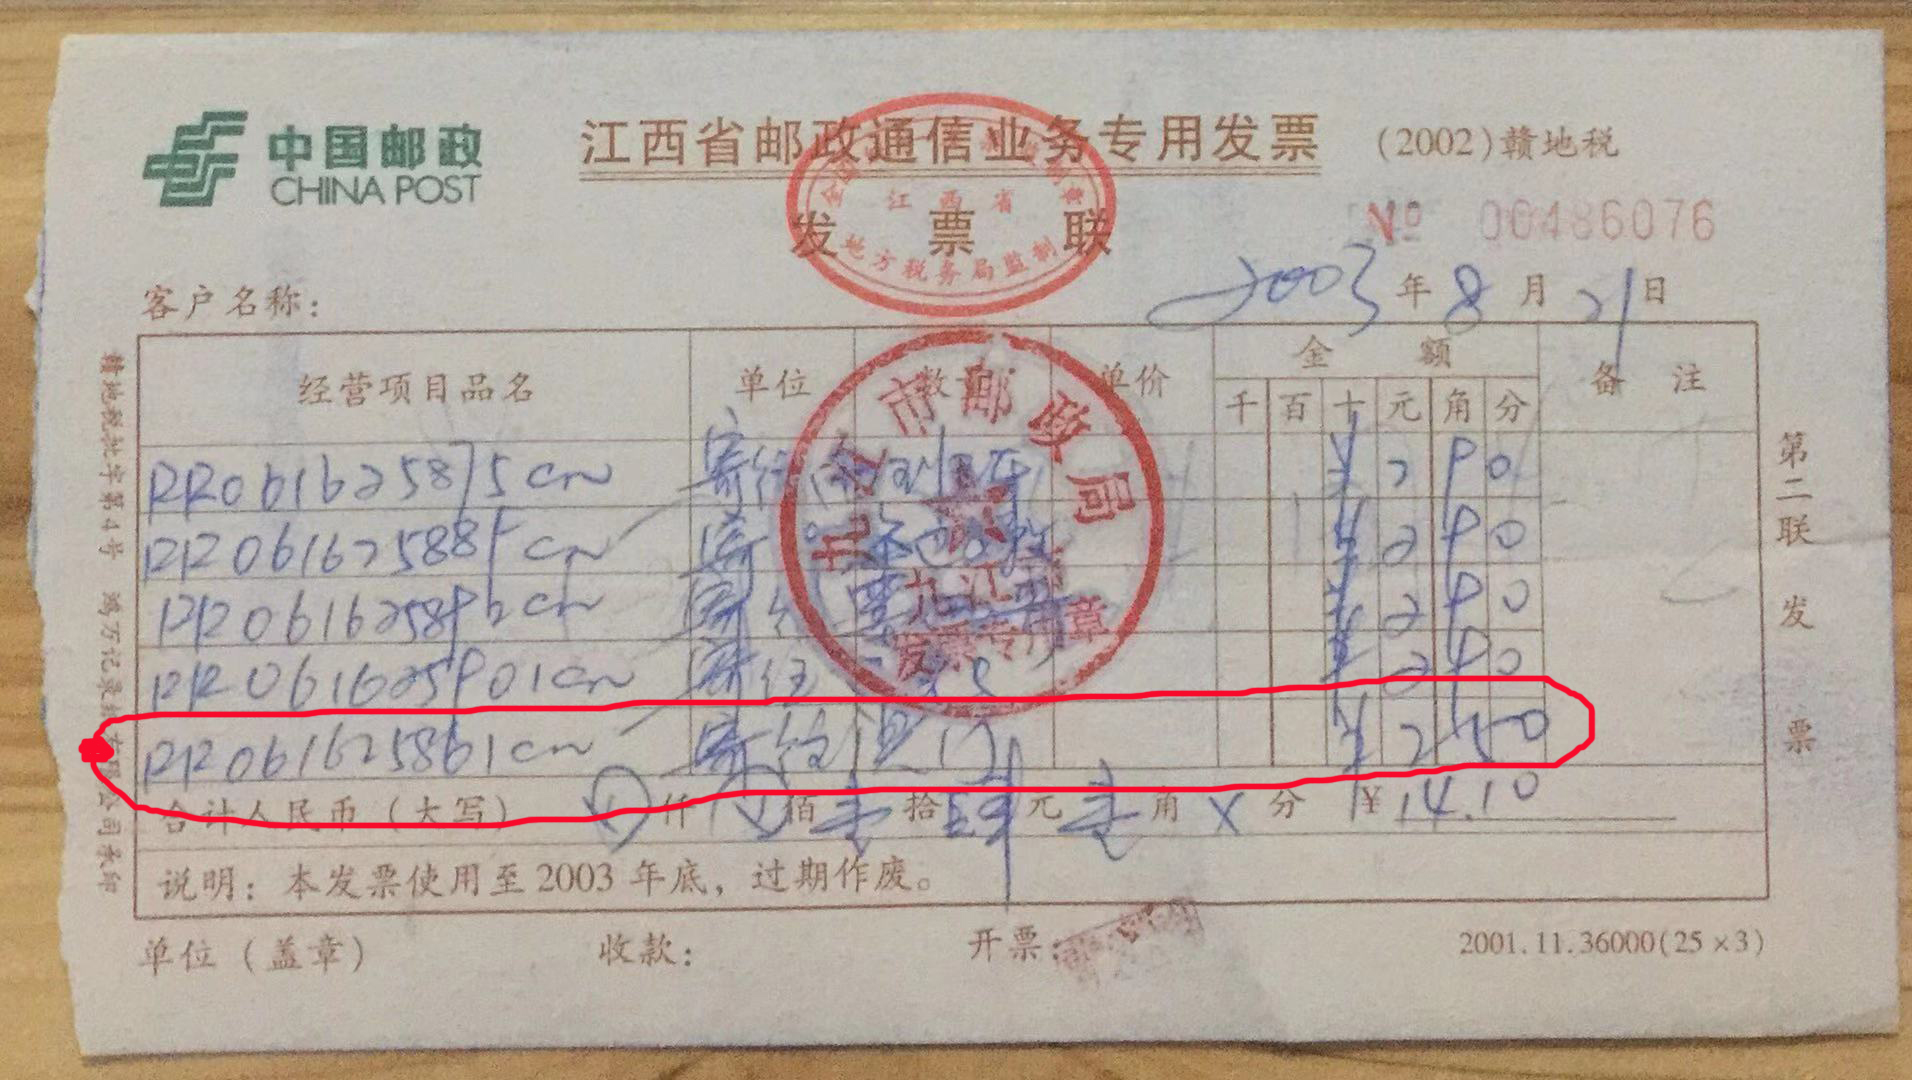 中国邮政
CHINA POST
江西省邮政通信业务专用发票
(2002)赣地税
发票联
江西省
地方税务局监制
№ 00486076
客户名称:
2003年8月21日
经营项目品名 单位 数量 单价 金额 备注
千 百 十 元 角 分
RR061625875cn 寄往 ¥ 2 9 0
RR061625889cn 寄 ¥ 2 9 0
RR061625892cn 寄往 ¥ 2 9 0
RR061625901cn 寄往 ¥ 2 9 0
RR061625861cn 寄往澳门 ¥ 2 5 0
九江市邮政局
九江
发票专用章
合计人民币(大写) 仟 佰 壹拾肆元壹角×分 ¥14.10
说明:本发票使用至2003年底,过期作废。
单位(盖章) 收款: 开票:
2001.11.36000(25×3)
第二联 发票
赣地税批字第4号